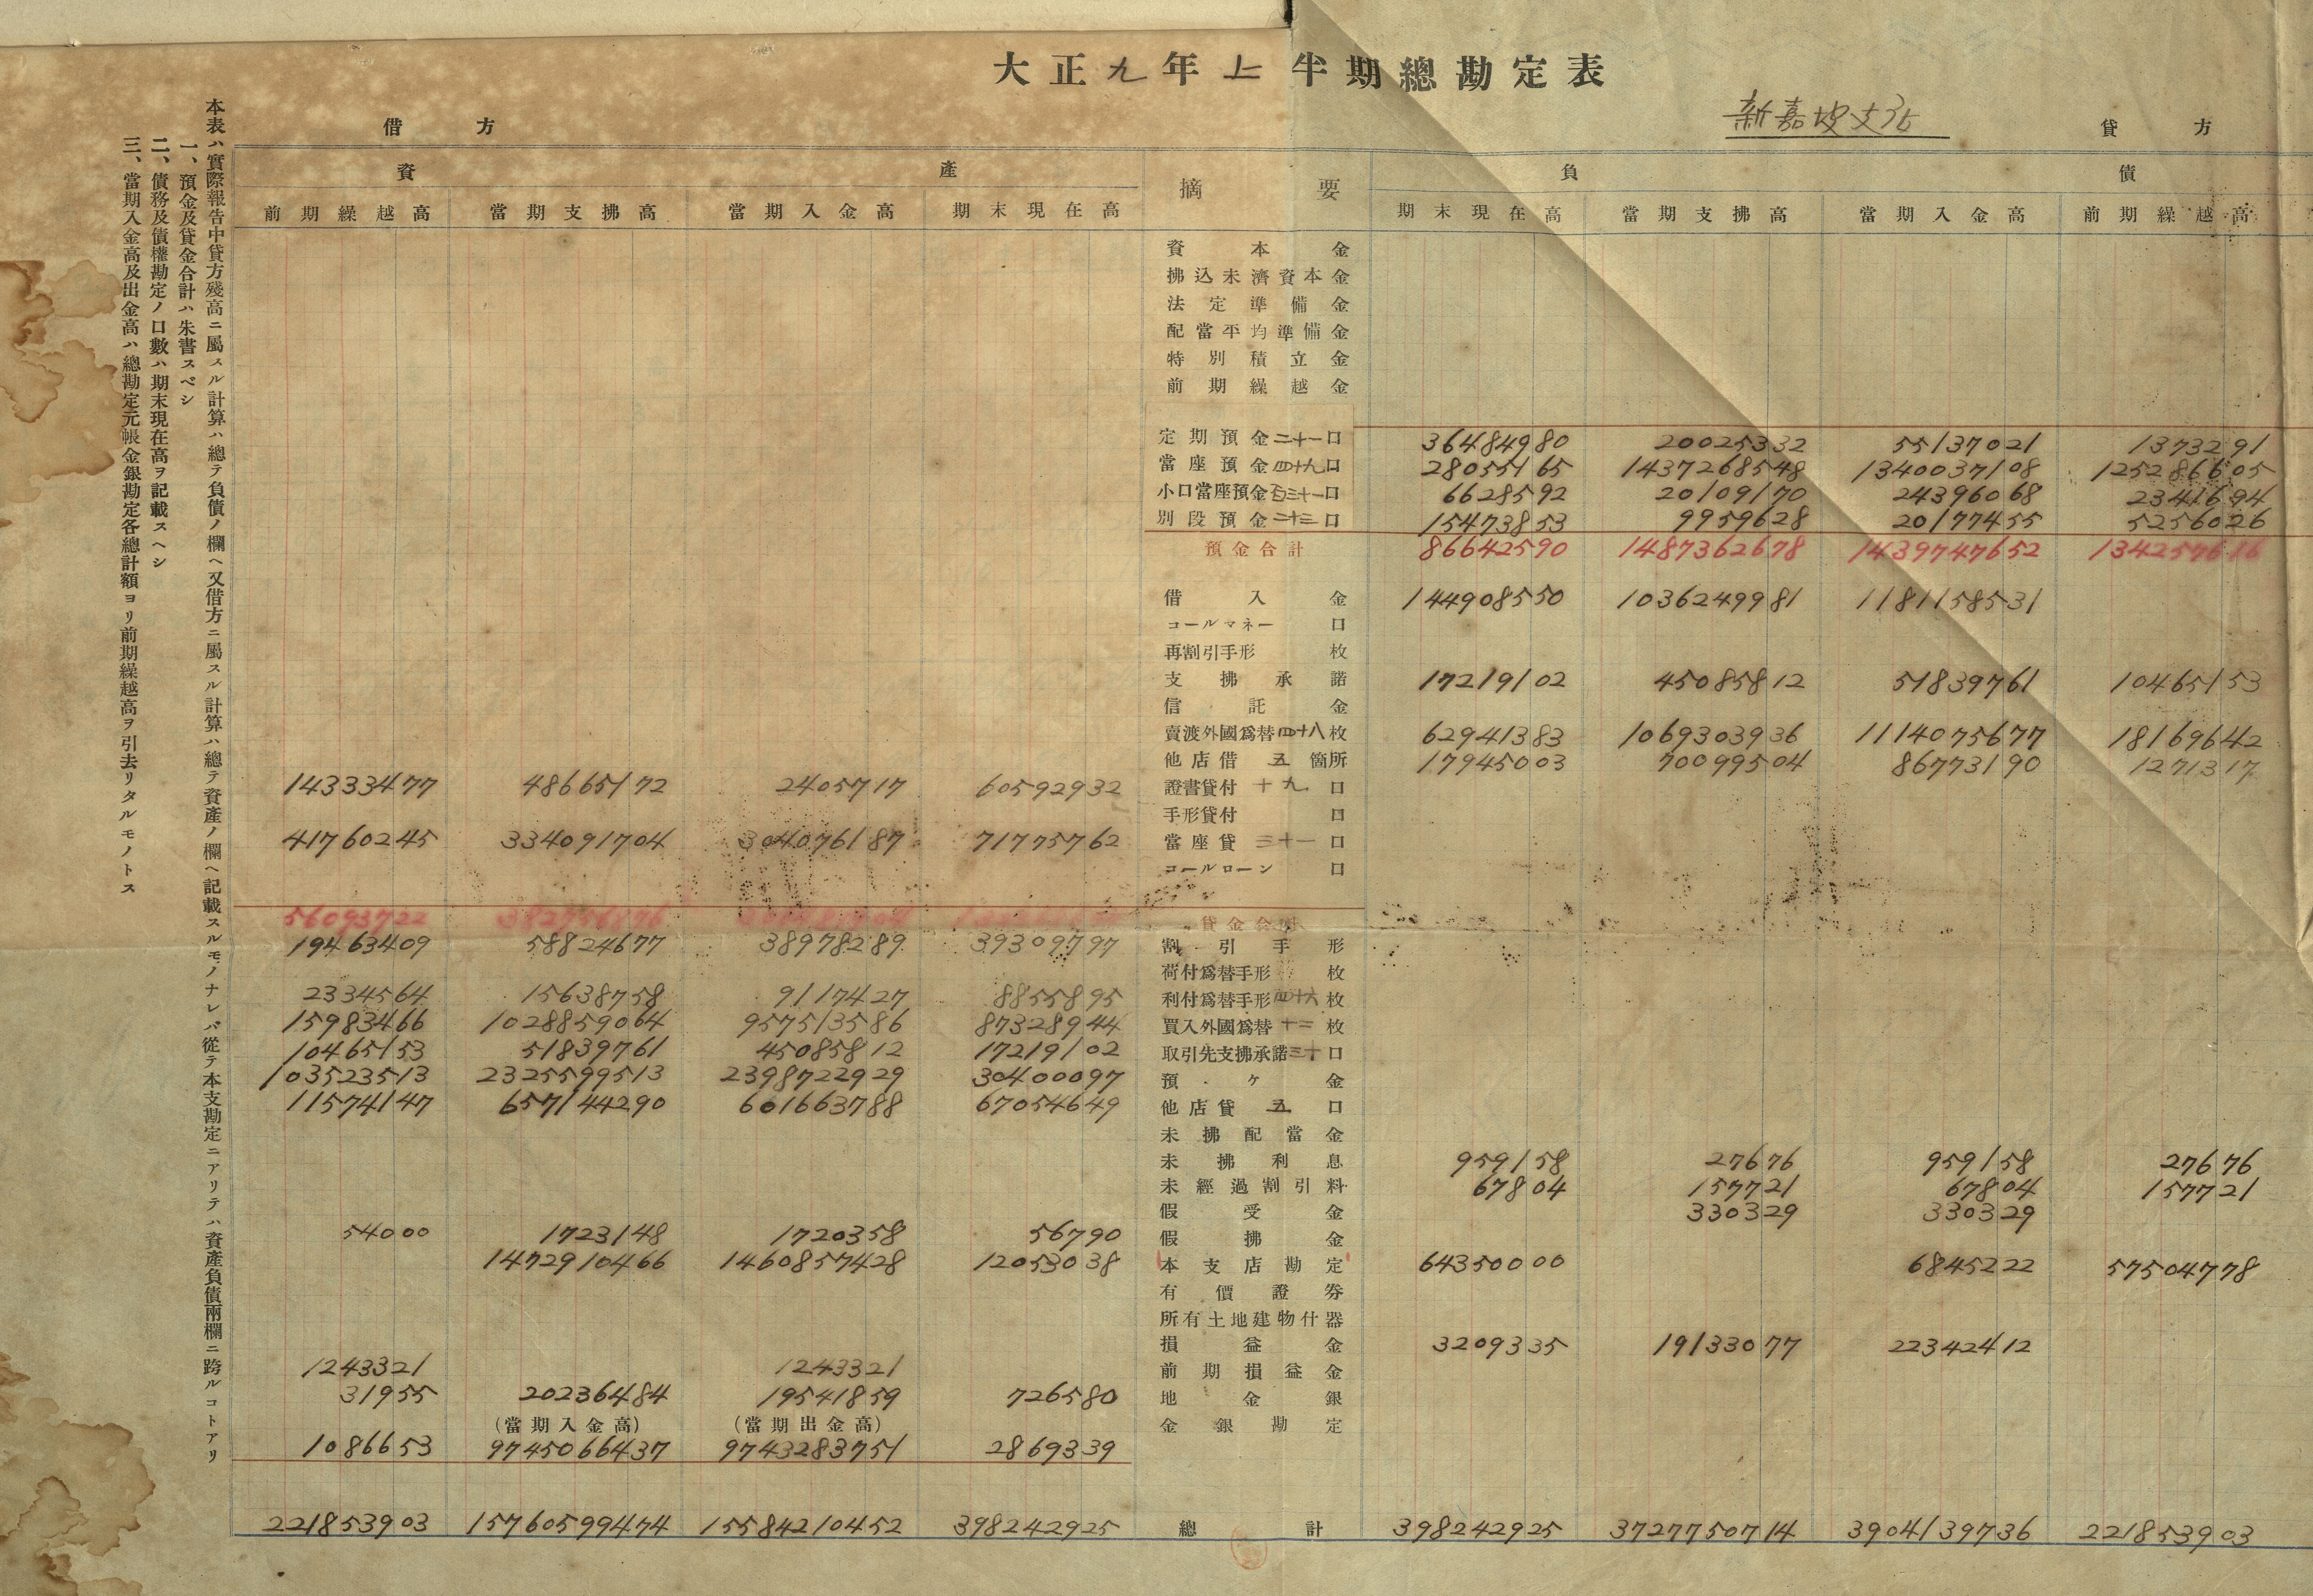 大正九年上半期總勘定表
新嘉坡支店
借方
貸方
資產
摘要
負債
前期繰越高 當期支拂高 當期入金高 期末現在高 期末現在高 當期支拂高 當期入金高 前期繰越高
資本金
拂込未濟資本金
法定準備金
配當平均準備金
特別積立金
前期繰越金
定期預金二十一口 36484980 20025332 55137021 1373291
當座預金四十九口 28055165 1437268548 1340037108 125286605
小口當座預金百三十一口 6628592 20109170 24396068 2341694
別段預金二十三口 15473853 9959628 20177455 5256026
預金合計 86642590 1487362678 1439747652 134257616
借入金 144908550 1036249981 1181158531
コールマネー 口
再割引手形 枚
支拂承諾 17219102 45085812 51839761 10465153
信託金
賣渡外國爲替四十八枚 62941383 1069303936 1114075677 18169642
他店借 五 箇所 17945003 70099504 86773190 1271317
14333477 48665172 2405717 60592932 證書貸付 十九 口
手形貸付 口
41760245 334091704 304076187 71775762 當座貸 三十一 口
コールローン 口
56093722 382756876 貸金合計
19463409 58824677 38978289 39309797 割引手形
荷付爲替手形 枚
2334564 15638758 9117427 8855895 利付爲替手形四十六枚
15983466 1028859064 957513586 87328944 買入外國爲替十二枚
10465153 51839761 45085812 17219102 取引先支拂承諾三十口
103523513 2325599513 2398722929 30400097 預ケ金
11574147 657144290 601663788 67054649 他店貸 五 口
未拂配當金
未拂利息 959158 27676 959158 27676
未經過割引料 67804 157721 67804 157721
假受金 330329 330329
54000 1723148 1720358 56790 假拂金
1472910466 1460857428 12053038 本支店勘定 64350000 6845222 57504778
有價證券
所有土地建物什器
損益金 3209335 19133077 22342412
1243321 1243321 前期損益金
31955 20236484 19541859 726580 地金銀
(當期入金高) (當期出金高) 金銀勘定
1086653 9745066437 9743283751 2869339
221853903 15760599474 15584210452 398242925 總計 398242925 3727750714 3904139736 221853903
本表ハ實際報告中貸方殘高ニ屬スル計算ハ總テ負債ノ欄ヘ又借方ニ屬スル計算ハ總テ資產ノ欄ヘ記載スルモノナレバ從テ本支勘定ニアリテハ資產負債兩欄ニ跨ルコトアリ
一、預金及貸金合計ハ朱書スベシ
二、債務及債權勘定ノ口數ハ期末現在高ヲ記載スヘシ
三、當期入金高及出金高ハ總勘定元帳金銀勘定各總計額ヨリ前期繰越高ヲ引去リタルモノトス